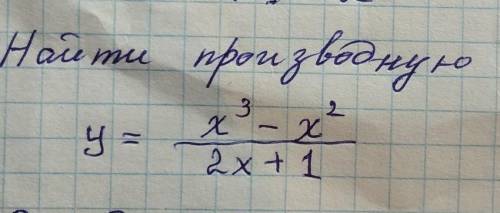 Найти производную
y = (x³ - x²)/(2x + 1)